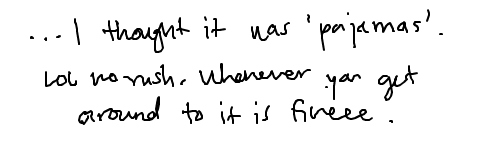 ... I thought it was 'pajamas'.
LOL no rush. Whenever you get
around to it is fineee.